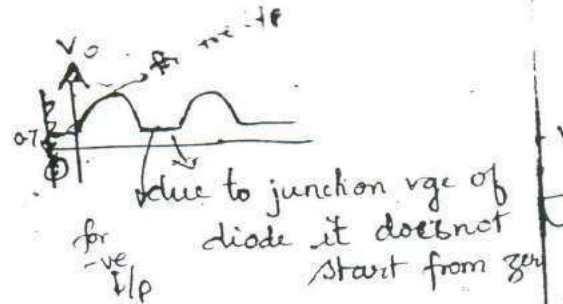 Vo
for +ve i/p
0.7
due to junction vge of
diode it doesnot
start from zer
for
-ve
i/p